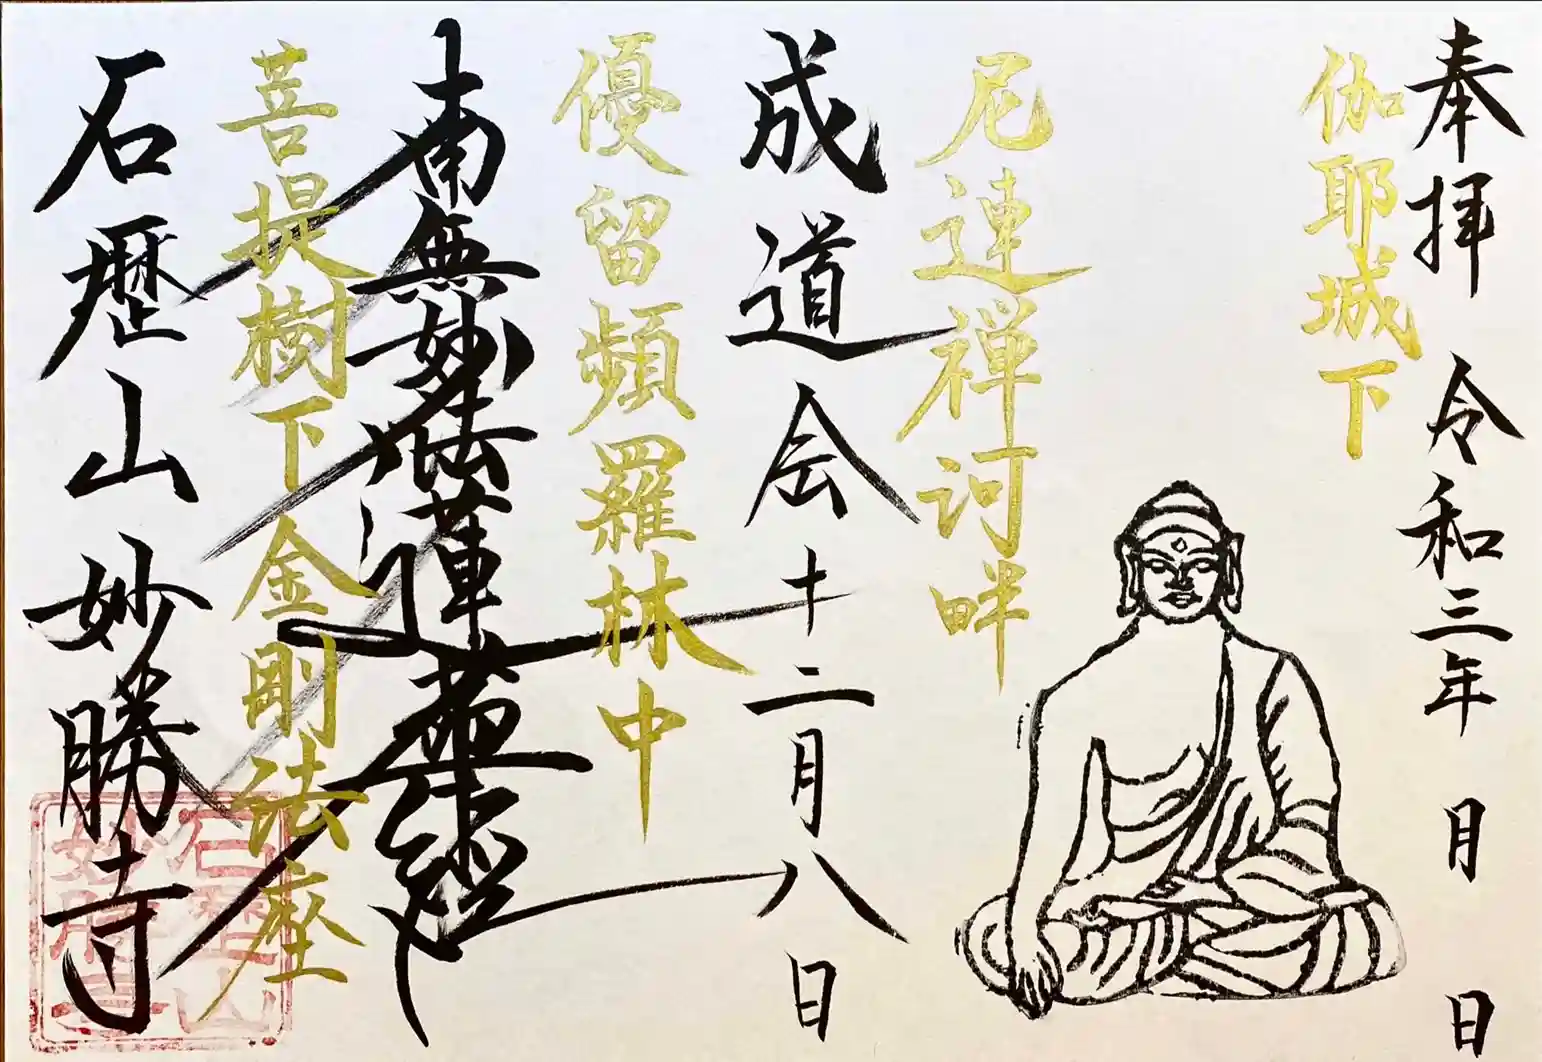 奉拝 令和三年 月 日
伽耶城下
尼連禅河畔
成道会十二月八日
優留頻羅林中
南無妙法蓮華経
菩提樹下金剛法座
石歴山妙勝寺
石歴山
妙勝寺